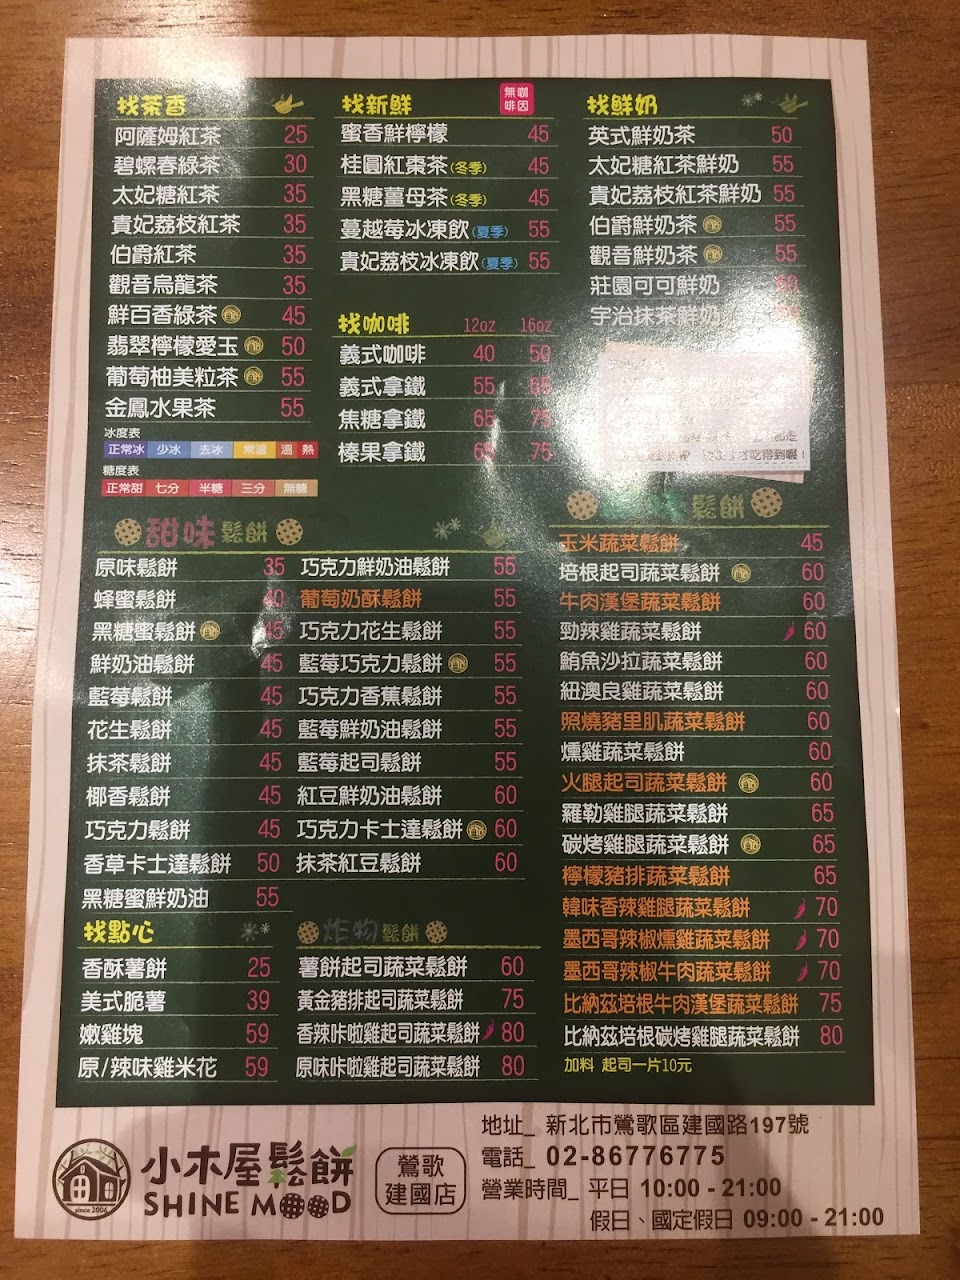 找茶香
阿薩姆紅茶 25
碧螺春綠茶 30
太妃糖紅茶 35
貴妃荔枝紅茶 35
伯爵紅茶 35
觀音烏龍茶 35
鮮百香綠茶 45
翡翠檸檬愛玉 50
葡萄柚美粒茶 55
金鳳水果茶 55
冰度表
正常冰 少冰 去冰 常溫 溫 熱
糖度表
正常甜 七分 半糖 三分 無糖
找新鮮
無咖啡因
蜜香鮮檸檬 45
桂圓紅棗茶(冬季) 45
黑糖薑母茶(冬季) 45
蔓越莓冰凍飲(夏季) 55
貴妃荔枝冰凍飲(夏季) 55
找咖啡 12oz 16oz
義式咖啡 40 50
義式拿鐵 55 65
焦糖拿鐵 65 75
榛果拿鐵 65 75
找鮮奶
英式鮮奶茶 50
太妃糖紅茶鮮奶 55
貴妃荔枝紅茶鮮奶 55
伯爵鮮奶茶 55
觀音鮮奶茶 55
莊園可可鮮奶
宇治抹茶鮮奶
才吃得到喔！
甜味鬆餅
原味鬆餅 35
蜂蜜鬆餅 40
黑糖蜜鬆餅 45
鮮奶油鬆餅 45
藍莓鬆餅 45
花生鬆餅 45
抹茶鬆餅 45
椰香鬆餅 45
巧克力鬆餅 45
香草卡士達鬆餅 50
黑糖蜜鮮奶油 55
巧克力鮮奶油鬆餅 55
葡萄奶酥鬆餅 55
巧克力花生鬆餅 55
藍莓巧克力鬆餅 55
巧克力香蕉鬆餅 55
藍莓鮮奶油鬆餅 55
藍莓起司鬆餅 55
紅豆鮮奶油鬆餅 60
巧克力卡士達鬆餅 60
抹茶紅豆鬆餅 60
鬆餅
玉米蔬菜鬆餅 45
培根起司蔬菜鬆餅 60
牛肉漢堡蔬菜鬆餅 60
勁辣雞蔬菜鬆餅 60
鮪魚沙拉蔬菜鬆餅 60
紐澳良雞蔬菜鬆餅 60
照燒豬里肌蔬菜鬆餅 60
燻雞蔬菜鬆餅 60
火腿起司蔬菜鬆餅 60
羅勒雞腿蔬菜鬆餅 65
碳烤雞腿蔬菜鬆餅 65
檸檬豬排蔬菜鬆餅 65
韓味香辣雞腿蔬菜鬆餅 70
墨西哥辣椒燻雞蔬菜鬆餅 70
墨西哥辣椒牛肉蔬菜鬆餅 70
比納茲培根牛肉漢堡蔬菜鬆餅 75
比納茲培根碳烤雞腿蔬菜鬆餅 80
加料 起司一片10元
找點心
香酥薯餅 25
美式脆薯 39
嫩雞塊 59
原/辣味雞米花 59
炸物鬆餅
薯餅起司蔬菜鬆餅 60
黃金豬排起司蔬菜鬆餅 75
香辣咔啦雞起司蔬菜鬆餅 80
原味咔啦雞起司蔬菜鬆餅 80
since 2006
小木屋鬆餅
SHINE MOOD
鶯歌
建國店
地址_ 新北市鶯歌區建國路197號
電話_ 02-86776775
營業時間_ 平日 10:00 - 21:00
假日、國定假日 09:00 - 21:00